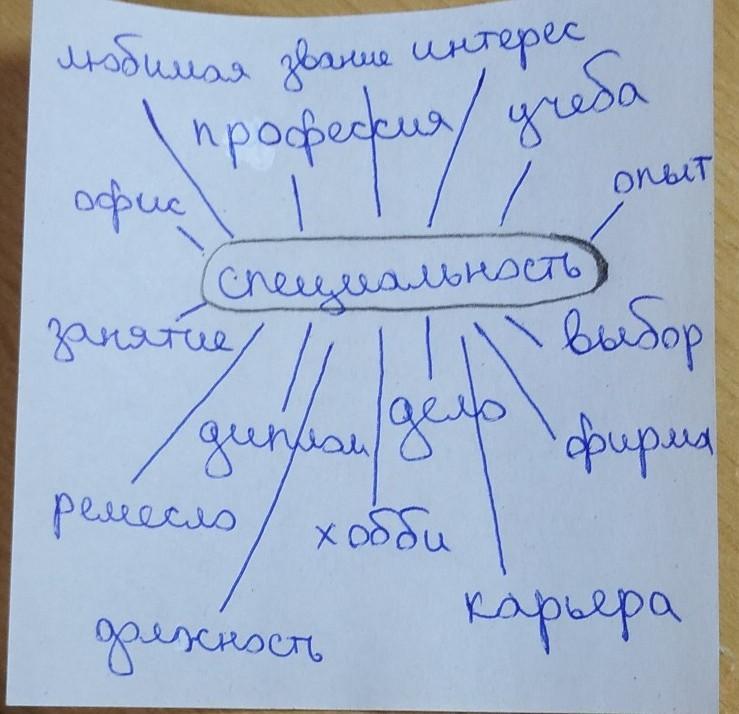 любимая звание интерес
профессия учеба
офис опыт
специальность
занятие выбор
диплом дело фирма
ремесло хобби
должность карьера